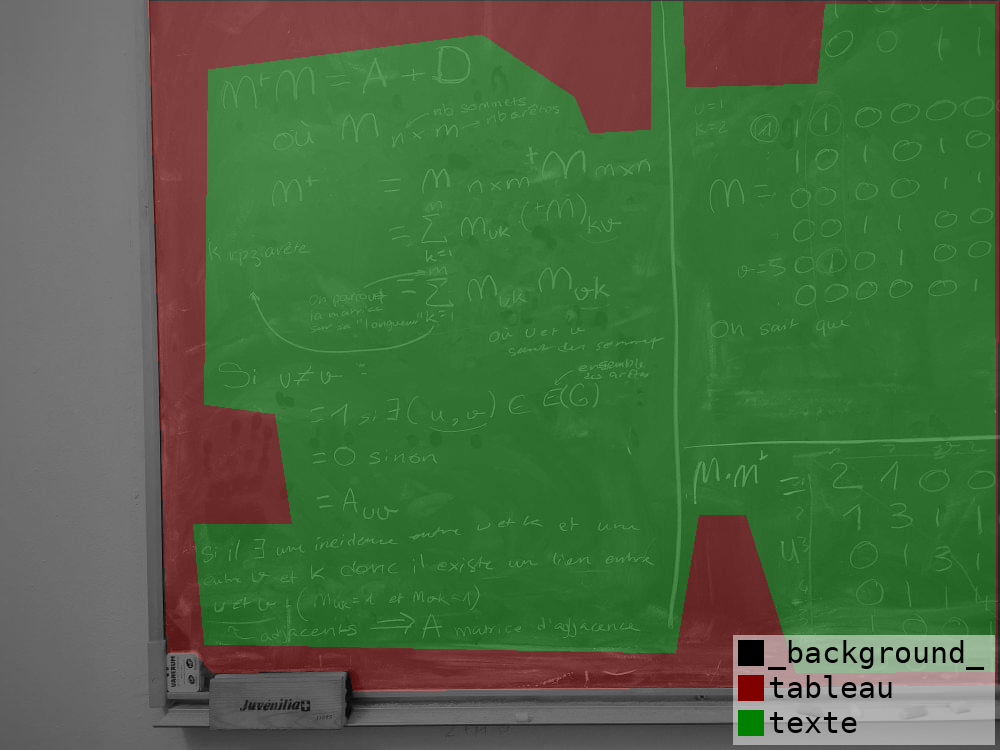 M⁺M = A + D
où M n×m
nb sommets
nb arêtes
M⁺ = M n×m ⁺M m×n
= Σ m k=1 M uk (⁺M) kv
= Σ m k=1 M uk M vk
On parcourt
la matrice
sur sa "longueur"
où u et v
sont des sommet
Si u≠v :
ensemble
des arêtes
= 1 si ∃(u,v) ∈ E(G)
= 0 sinon
= A uv
Si il ∃ une incidence entre u et k et une
entre v et k donc il existe un lien entre
u et v (Muk=1 et Mvk=1)
adjacents ⇒ A matrice d'adjacence
0 0 1 1
u=1
k=2
① 1 1 0 0 0 0
1 0 1 0 1 0
M = 0 0 0 0 1 1
0 0 1 1 0 0
v=5 0 0 0 1 0 0
0 0 0 0 0 1
On sait que
M.M⁺ = 2 1 0 0
1 3 1 1
0 1 3 1
0 1 1
Juvénilia
VANERUM
_background_
tableau
texte